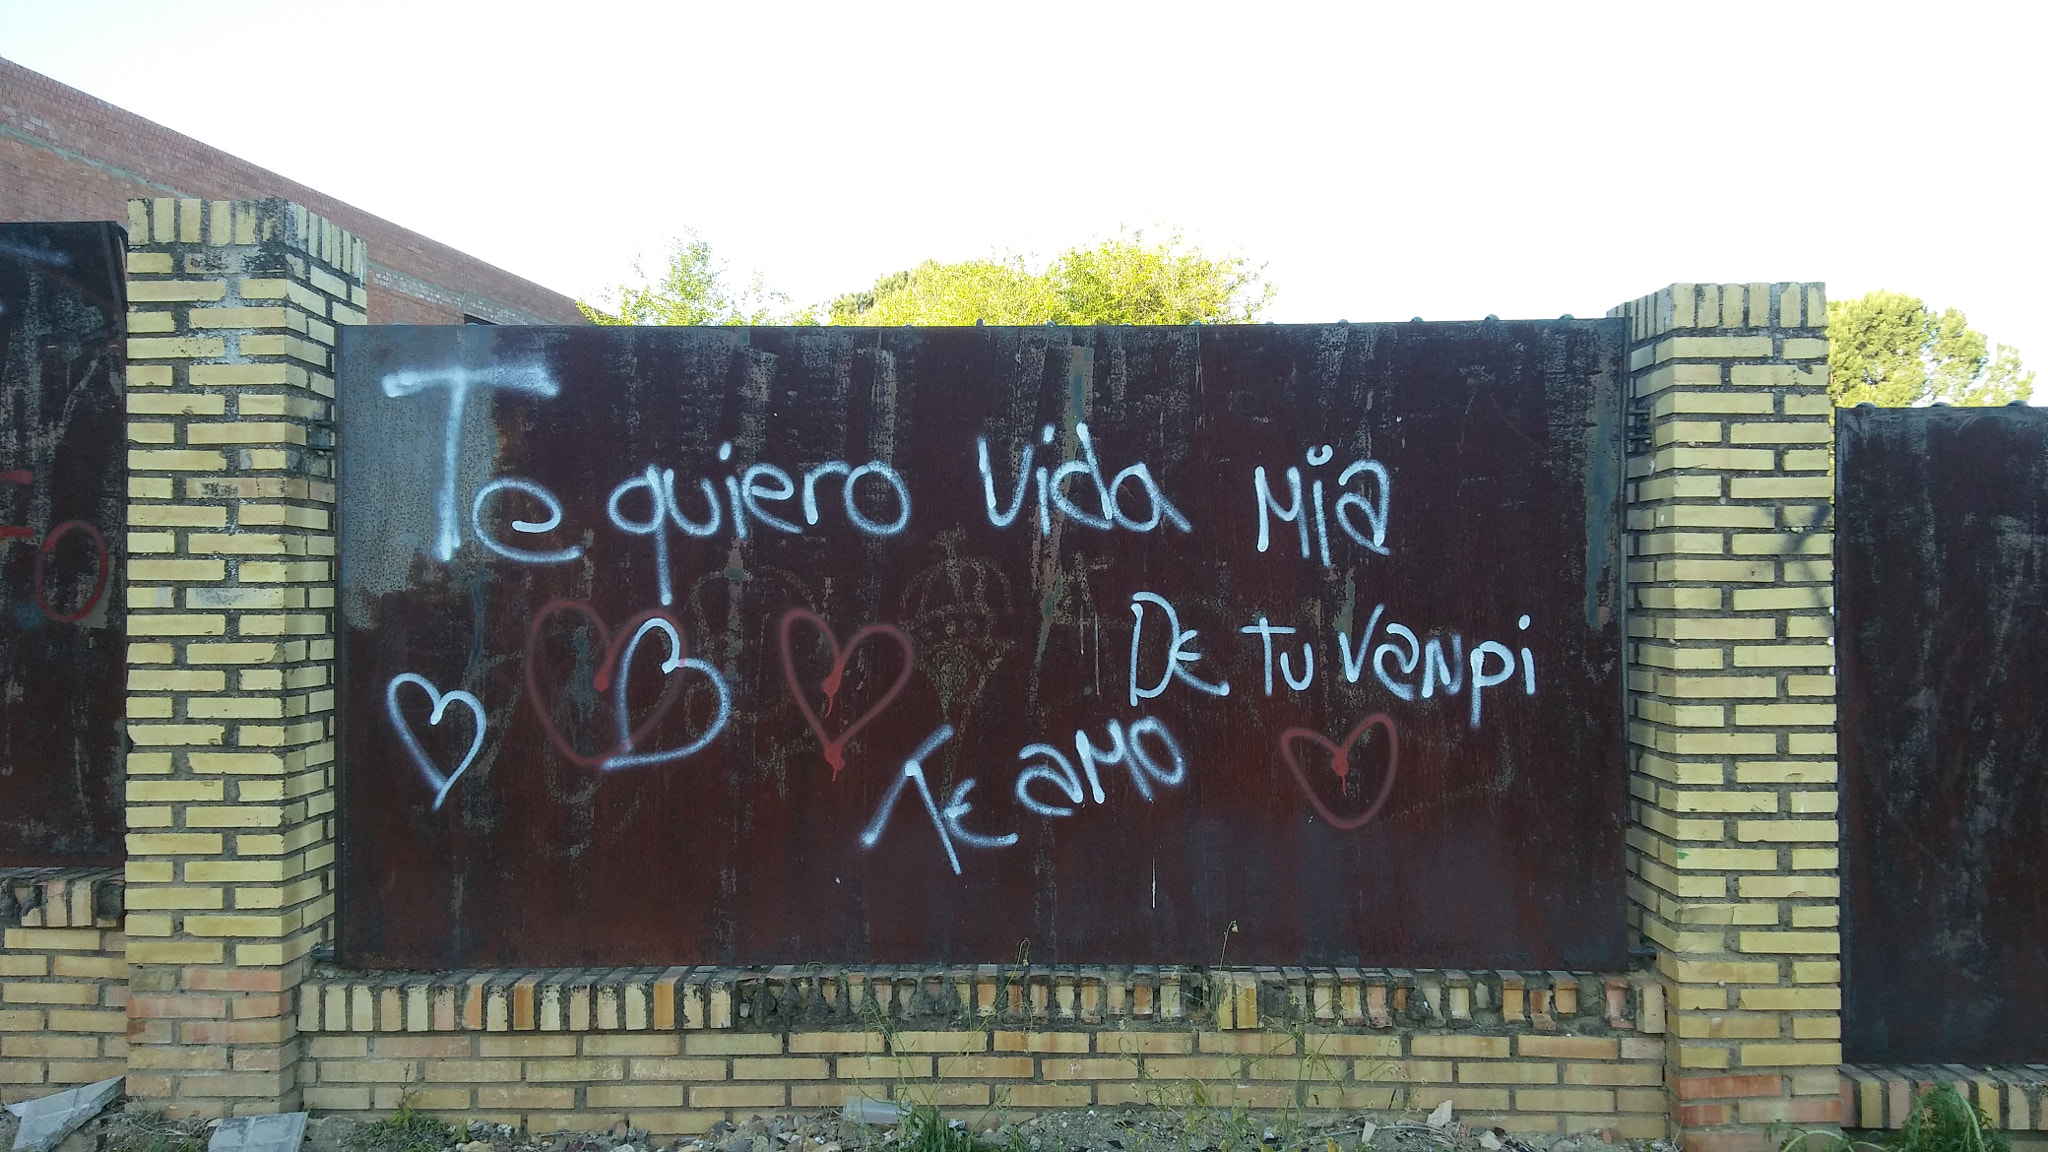 Te quiero vida mia
DE TU VANPI
TE AMO